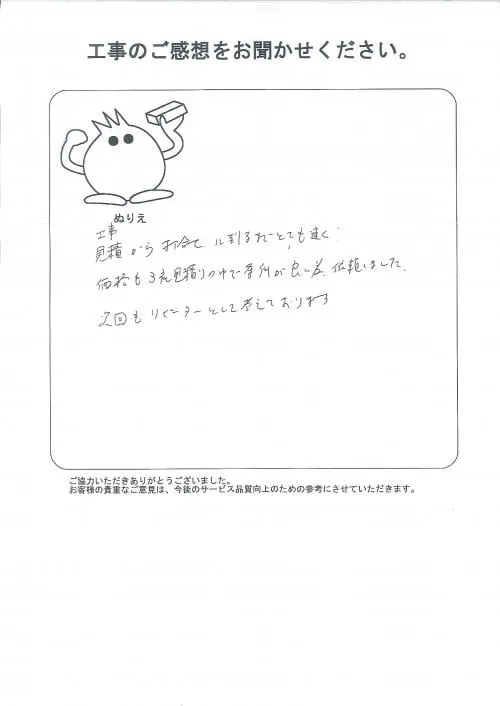 工事のご感想をお聞かせください。
ぬりえ
工事
見積から打合せに到るまでとても速く、
価格も3社見積りの中で条件が良い為、依頼しました。
次回もリピーターとして考えております
ご協力いただきありがとうございました。
お客様の貴重なご意見は、今後のサービス品質向上のための参考にさせていただきます。